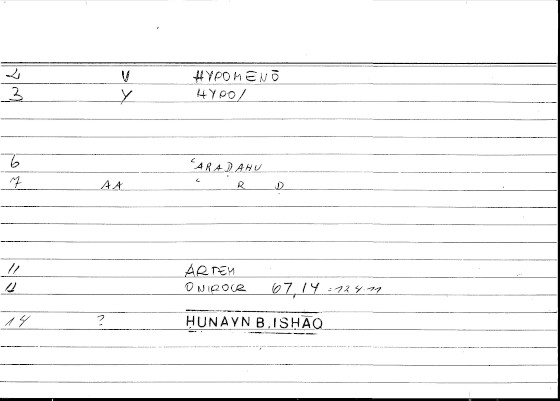 2 V HYPOMENŌ
3 Y HYPO/
6 ʿARAḌAHU
7 AA ʿ R Ḍ
11 ARTEM
12 ONIROCR 67,14 = 124 11
14 ? ḤUNAYN B. ISḤĀQ